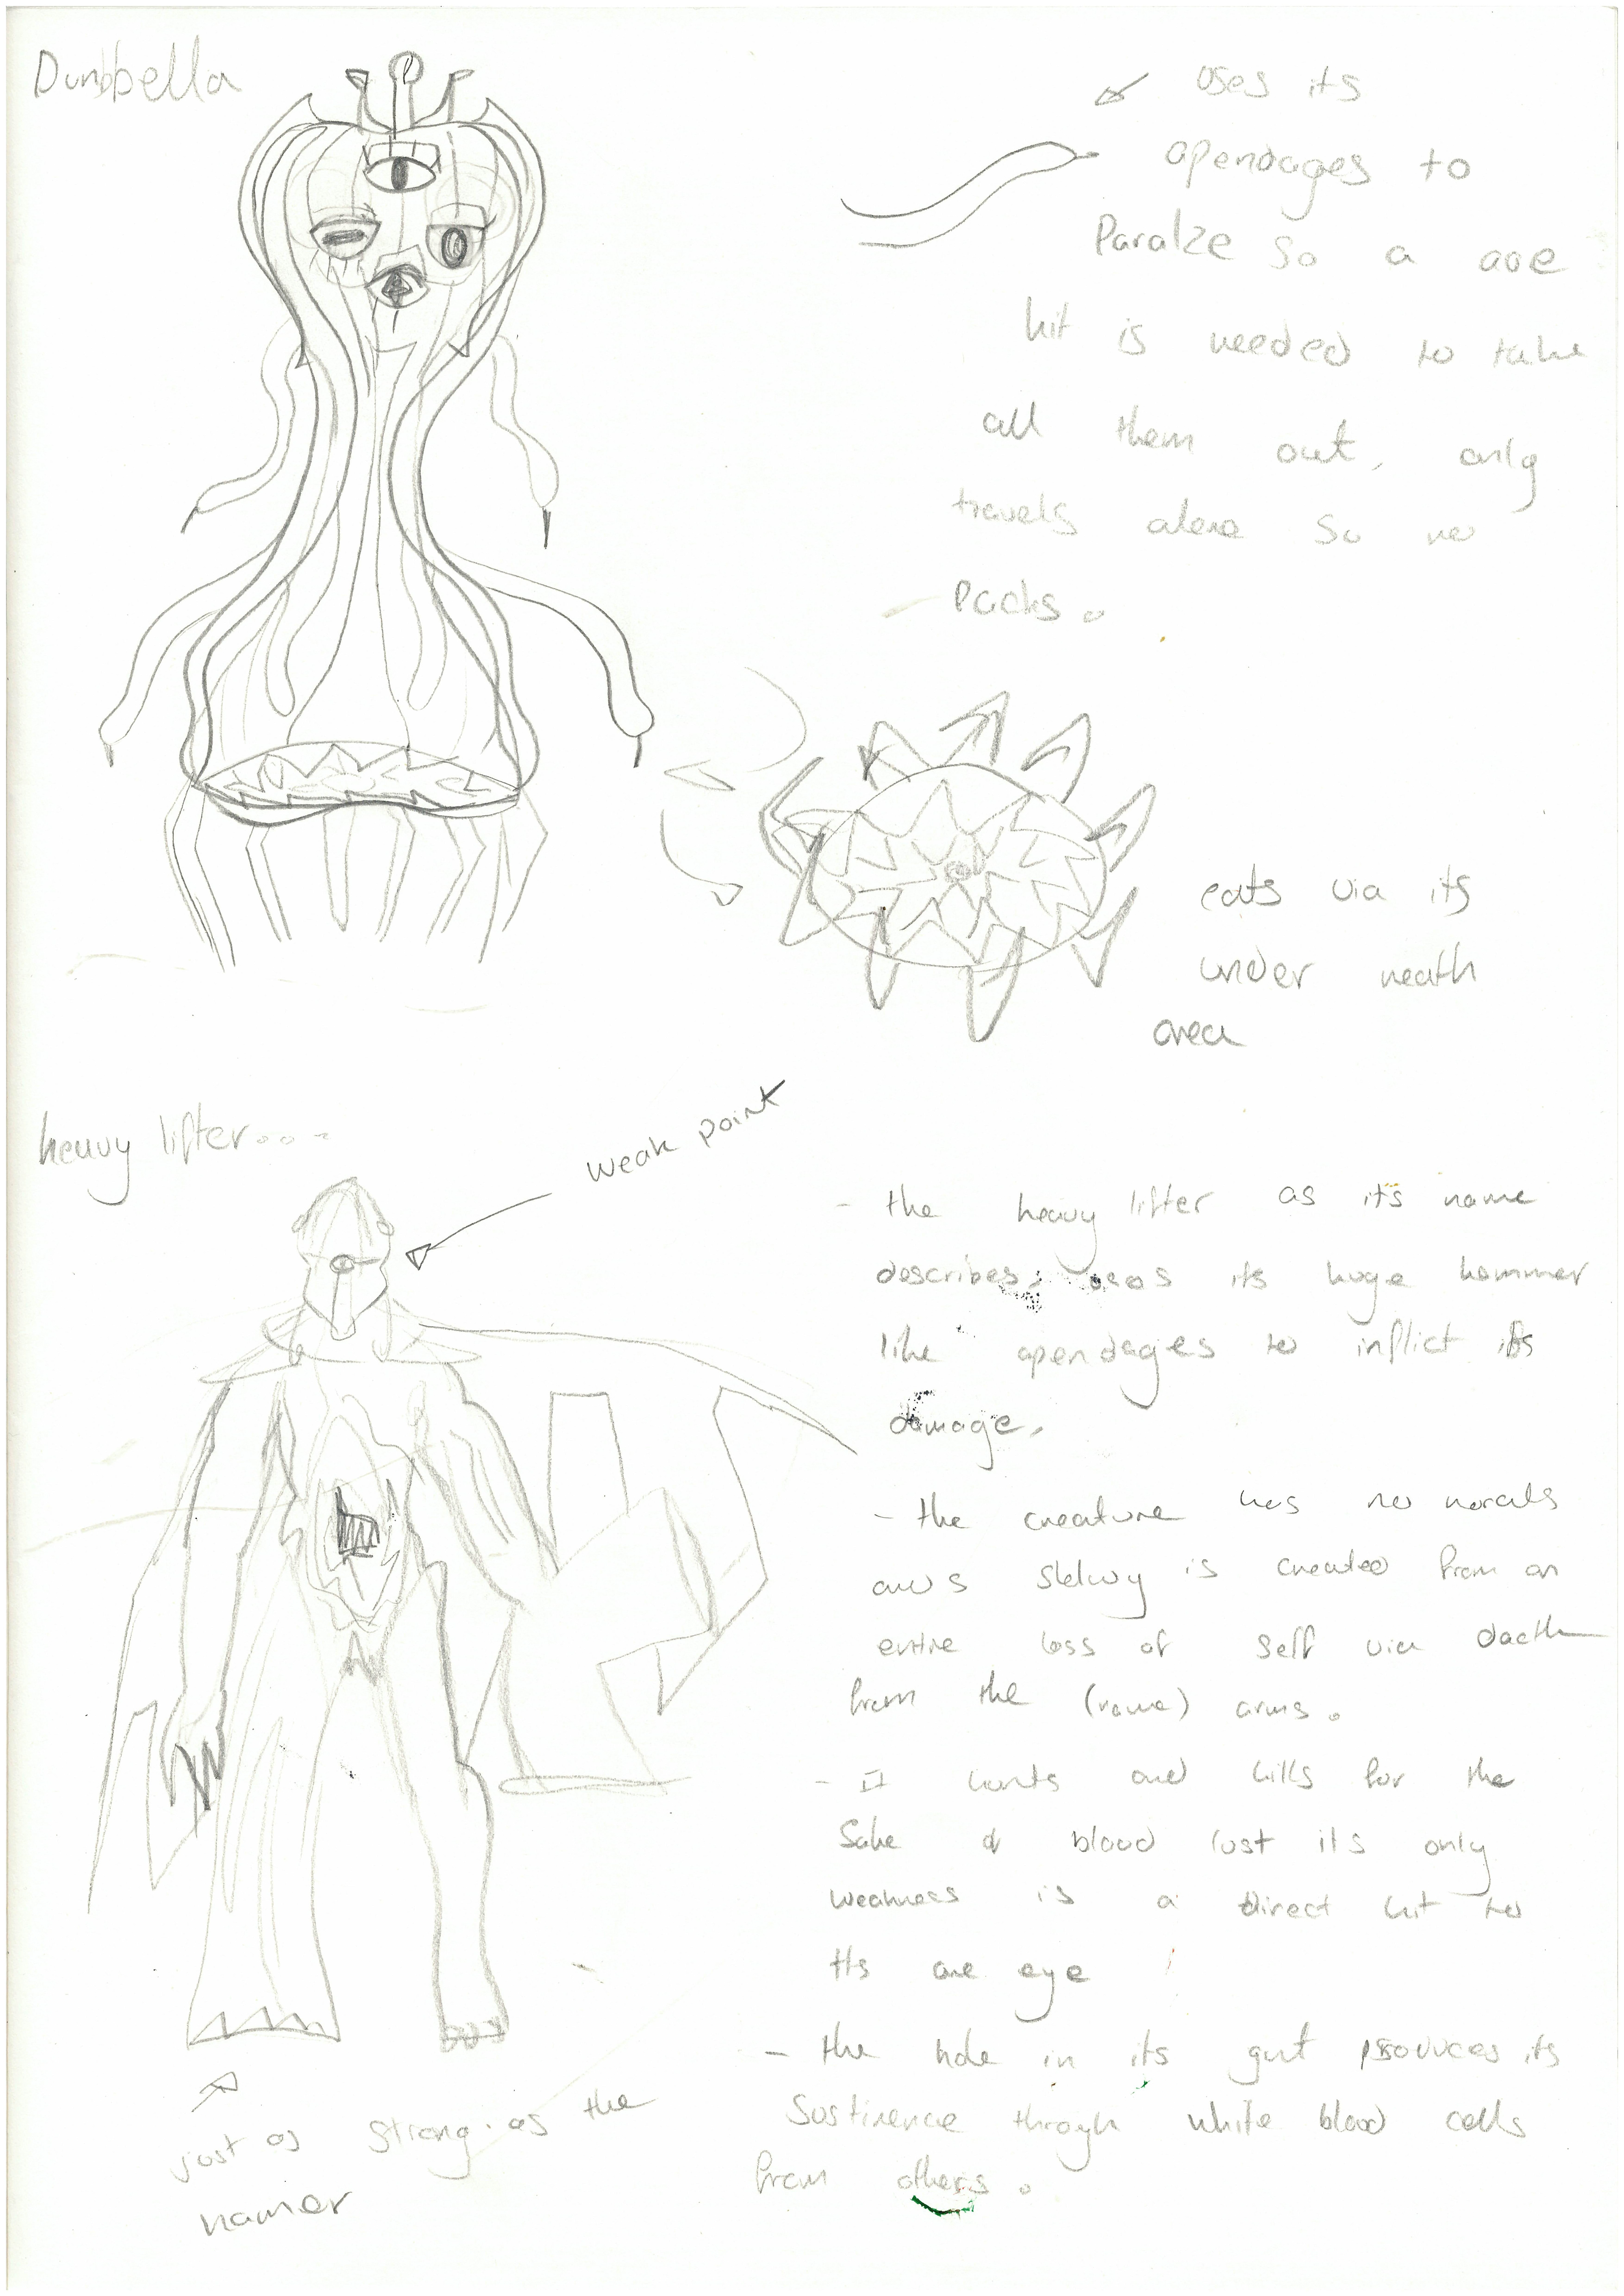 Dumbbella
uses its
apendages to
Paralze So a aoe
hit is needed to take
all them out, only
travels alone So no
Packs.
eats via its
under neath
area
heavy lifter...
weak point
- the heavy lifter as its name
describes, uses its huge hammer
like apendages to inflict its
damage.
- the creature has no morals
and s is created from an
entire loss of self via death
from the (name) arms.
- It hunts and kills for the
Sake of blood lust its only
weakness is a direct hit to
its one eye
- the hole in its gut produces its
Sustinence through white blood cells
from others.
just as strong as the
hamer